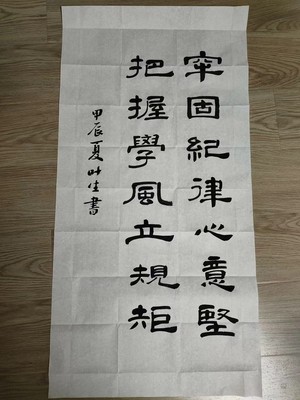 牢固紀律心意堅
把握學風立規矩
甲辰夏叶生書